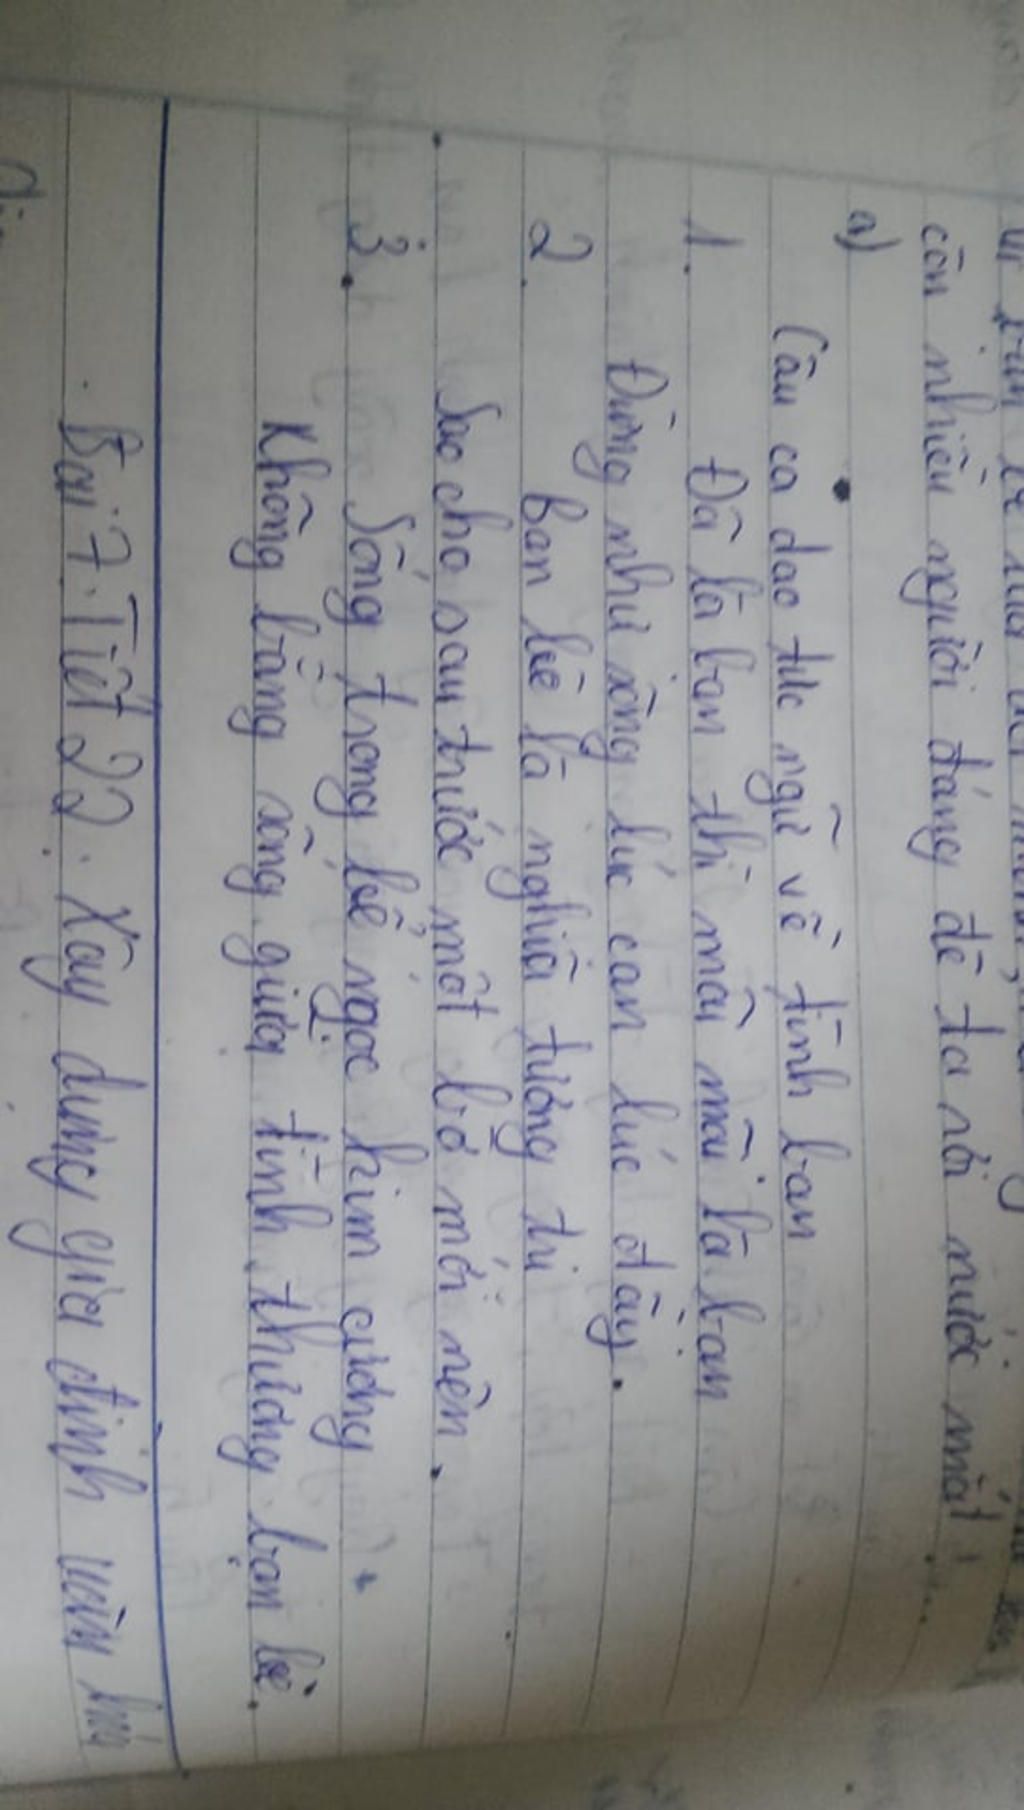 còn nhiều người đáng để ta rơi nước mắt!...
a)
Câu ca dao tục ngữ về tình bạn
1. Đã là bạn thì mãi mãi là bạn
Đừng như sông lúc cạn lúc đầy.
2. Bạn bè là nghĩa tương tri
Sao cho sau trước một bờ mới nên.
3. Sống trong bể ngọc kim cương
Không bằng sống giữa tình thương bạn bè.
Bài 7. Tiết 22. Xây dựng gia đình văn hóa